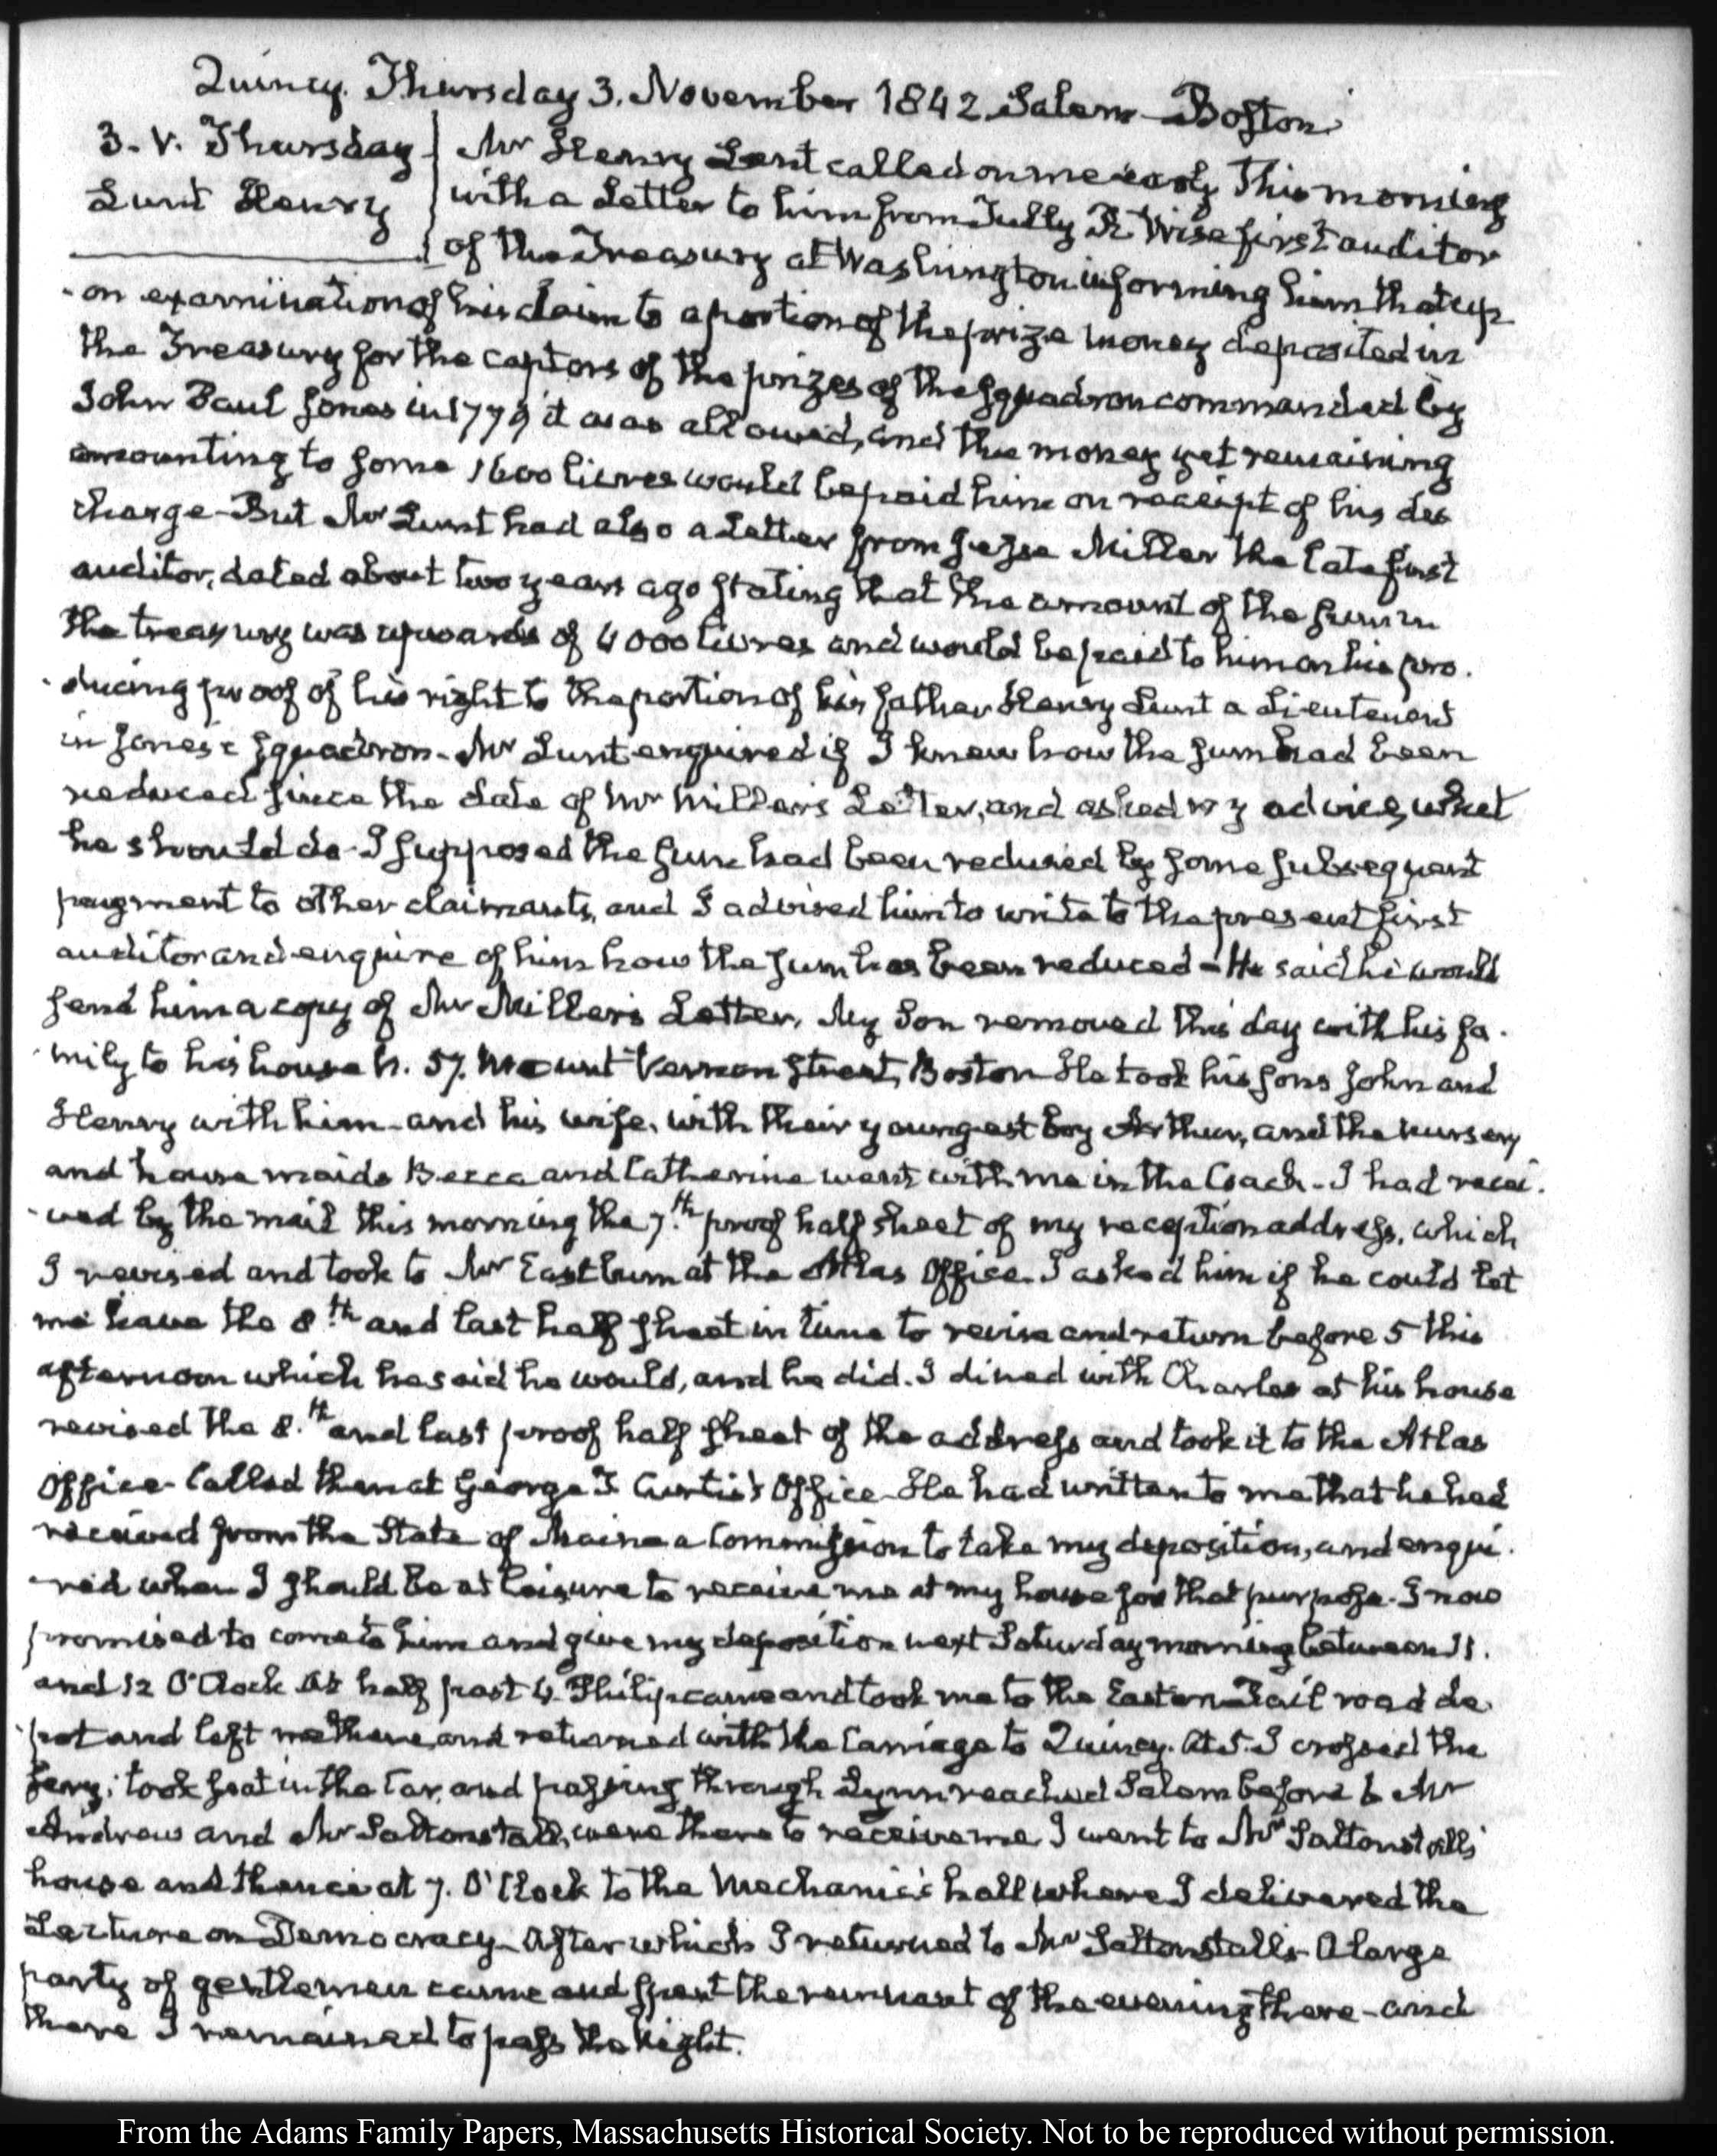 Quincy. Thursday 3. November 1842. Salem—Boston
3. V. Thursday
Lunt Henry
Mr Henry Lunt called on me early this morning
with a Letter to him from Tully R. Wise first auditor
of the Treasury at Washington informing him that up
-on examination of his claim to a portion of the prize money deposited in
the Treasury for the captors of the prizes of the Squadron commanded by
John Paul Jones in 1779 it was allowed, and the money yet remaining
amounting to some 1600 livres would be paid him on receipt of his dis
charge—But Mr Lunt had also a Letter from Jesse Miller the late first
auditor, dated about two years ago stating that the amount of the sum in
the treasury was upwards of 4000 livres and would be paid to him on his pro.
-ducing proof of his right to the portion of his father Henry Lunt a Lieutenant
in Jones's Squadron—Mr Lunt enquired if I knew how the sum had been
reduced since the date of Mr Miller's Letter, and asked my advice, what
he should do—I supposed the sum had been reduced by some subsequent
payment to other claimants, and I advised him to write to the present first
auditor and enquire of him how the sum has been reduced—He said he would
send him a copy of Mr Miller's Letter. My Son removed this day with his fa.
-mily to his house N. 57. Mount Vernon Street, Boston—He took his sons John and
Henry with him—and his wife, with their youngest boy Arthur, and the nursery
and house maids Becca and Catherine went with me in the Coach—I had recei.
-ved by the mail this morning the 7.th proof half sheet of my reception address, which
I revised and took to Mr Eastburn at the Atlas Office. I asked him if he could let
me have the 8.th and last half sheet in time to revise and return before 5 this
afternoon which he said he would, and he did. I dined with Charles at his house
revised the 8.th and last proof half sheet of the address and took it to the Atlas
Office—Called then at George T Curtis's Office—He had written to me that he had
received from the State of Maine a Commission to take my deposition, and enqui.
-red when I should be at leisure to receive me at my house for that purpose. I now
promised to come to him and give my deposition next Saturday morning between 11.
and 12 O'Clock. At half past 4. Philip came and took me to the Eastern Rail road de
-pot and left me there, and returned with the Carriage to Quincy. At 5. I crossed the
ferry; took seat in the Car, and passing through Lynn reached Salem before 6 Mr
Andrew and Mr Saltonstall, were there to receive me. I went to Mr Saltonstalls
house and thence at 7. O'Clock to the Mechanic's hall where I delivered the
Lecture on Democracy—After which I returned to Mr Saltonstalls—A large
party of gentlemen came and spent the remnant of the evening there—and
there I remained to pass the Night.
From the Adams Family Papers, Massachusetts Historical Society. Not to be reproduced without permission.